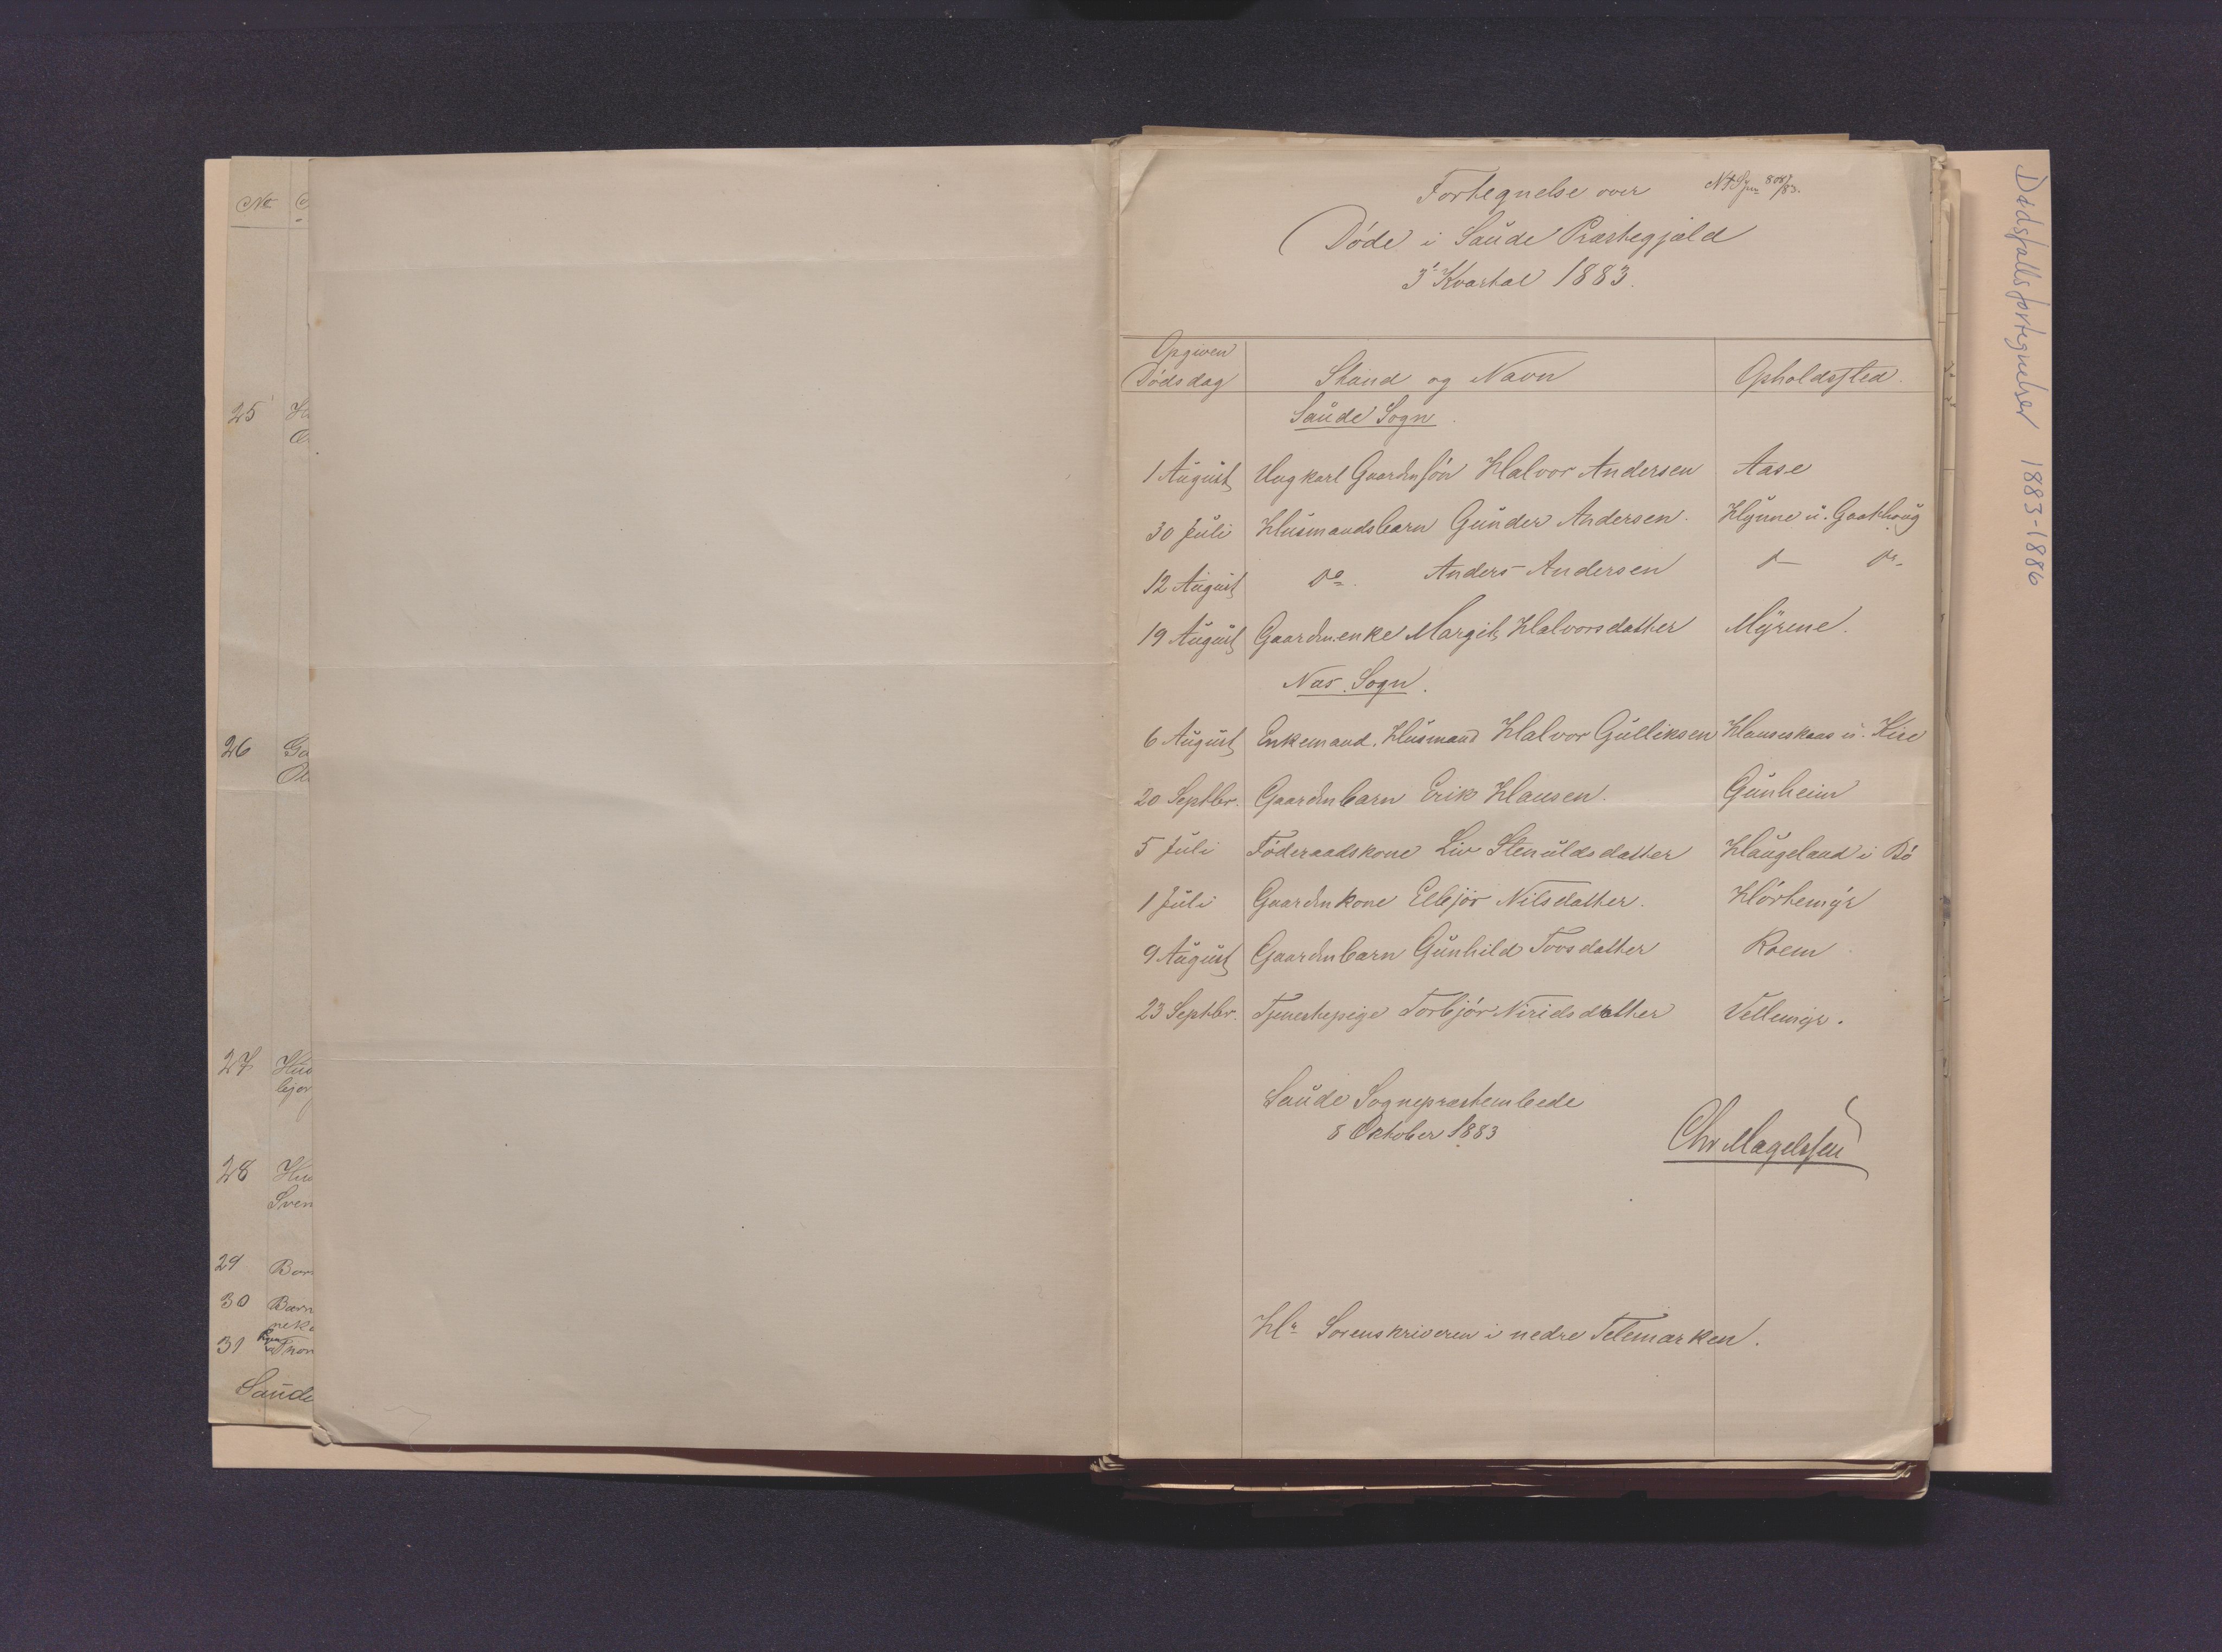 No
25
26
27
28
Sven
29
30 Barn
31
Saude
Fortegnelse over
Døde i Saude Præstegjæld
3' Kvartal 1883.
Opgiven Dødsdag Stand og Navn Opholdssted.
Saude Sogn.
1 August Ungkarl Gaardmsøn Halvor Andersen Aase
30 Juli Husmandsbarn Gunder Andersen. Hynne u. Gaakhoug
12 August Do. Anders Andersen
19 August Gaardm.enke Margit Halvorsdatter Myrene.
Næs Sogn.
6 August Enkemand, Husmand Halvor Gulliksen Hanseskaas u. Kise
20 Septbr. Gaardmbarn Erik Hansen. Gunheim
5 Juli Føderaadskone Liv Stenuldsdatter Haugeland i Bø
1 Juli Gaardmkone Elbjør Nilsdatter. Hørtemyr
9 August Gaardmbarn Gunhild Tovsdatter Roem
23 Septbr. Tjenestepige Torbjør Niridsdatter Vellemyr.
Saude Sognepræstembede
8 Oktober 1883
Chr Magelssen
Hr. Sorenskriveren i nedre Telemarken.
Dødsfallsfortegnelser 1883-1886